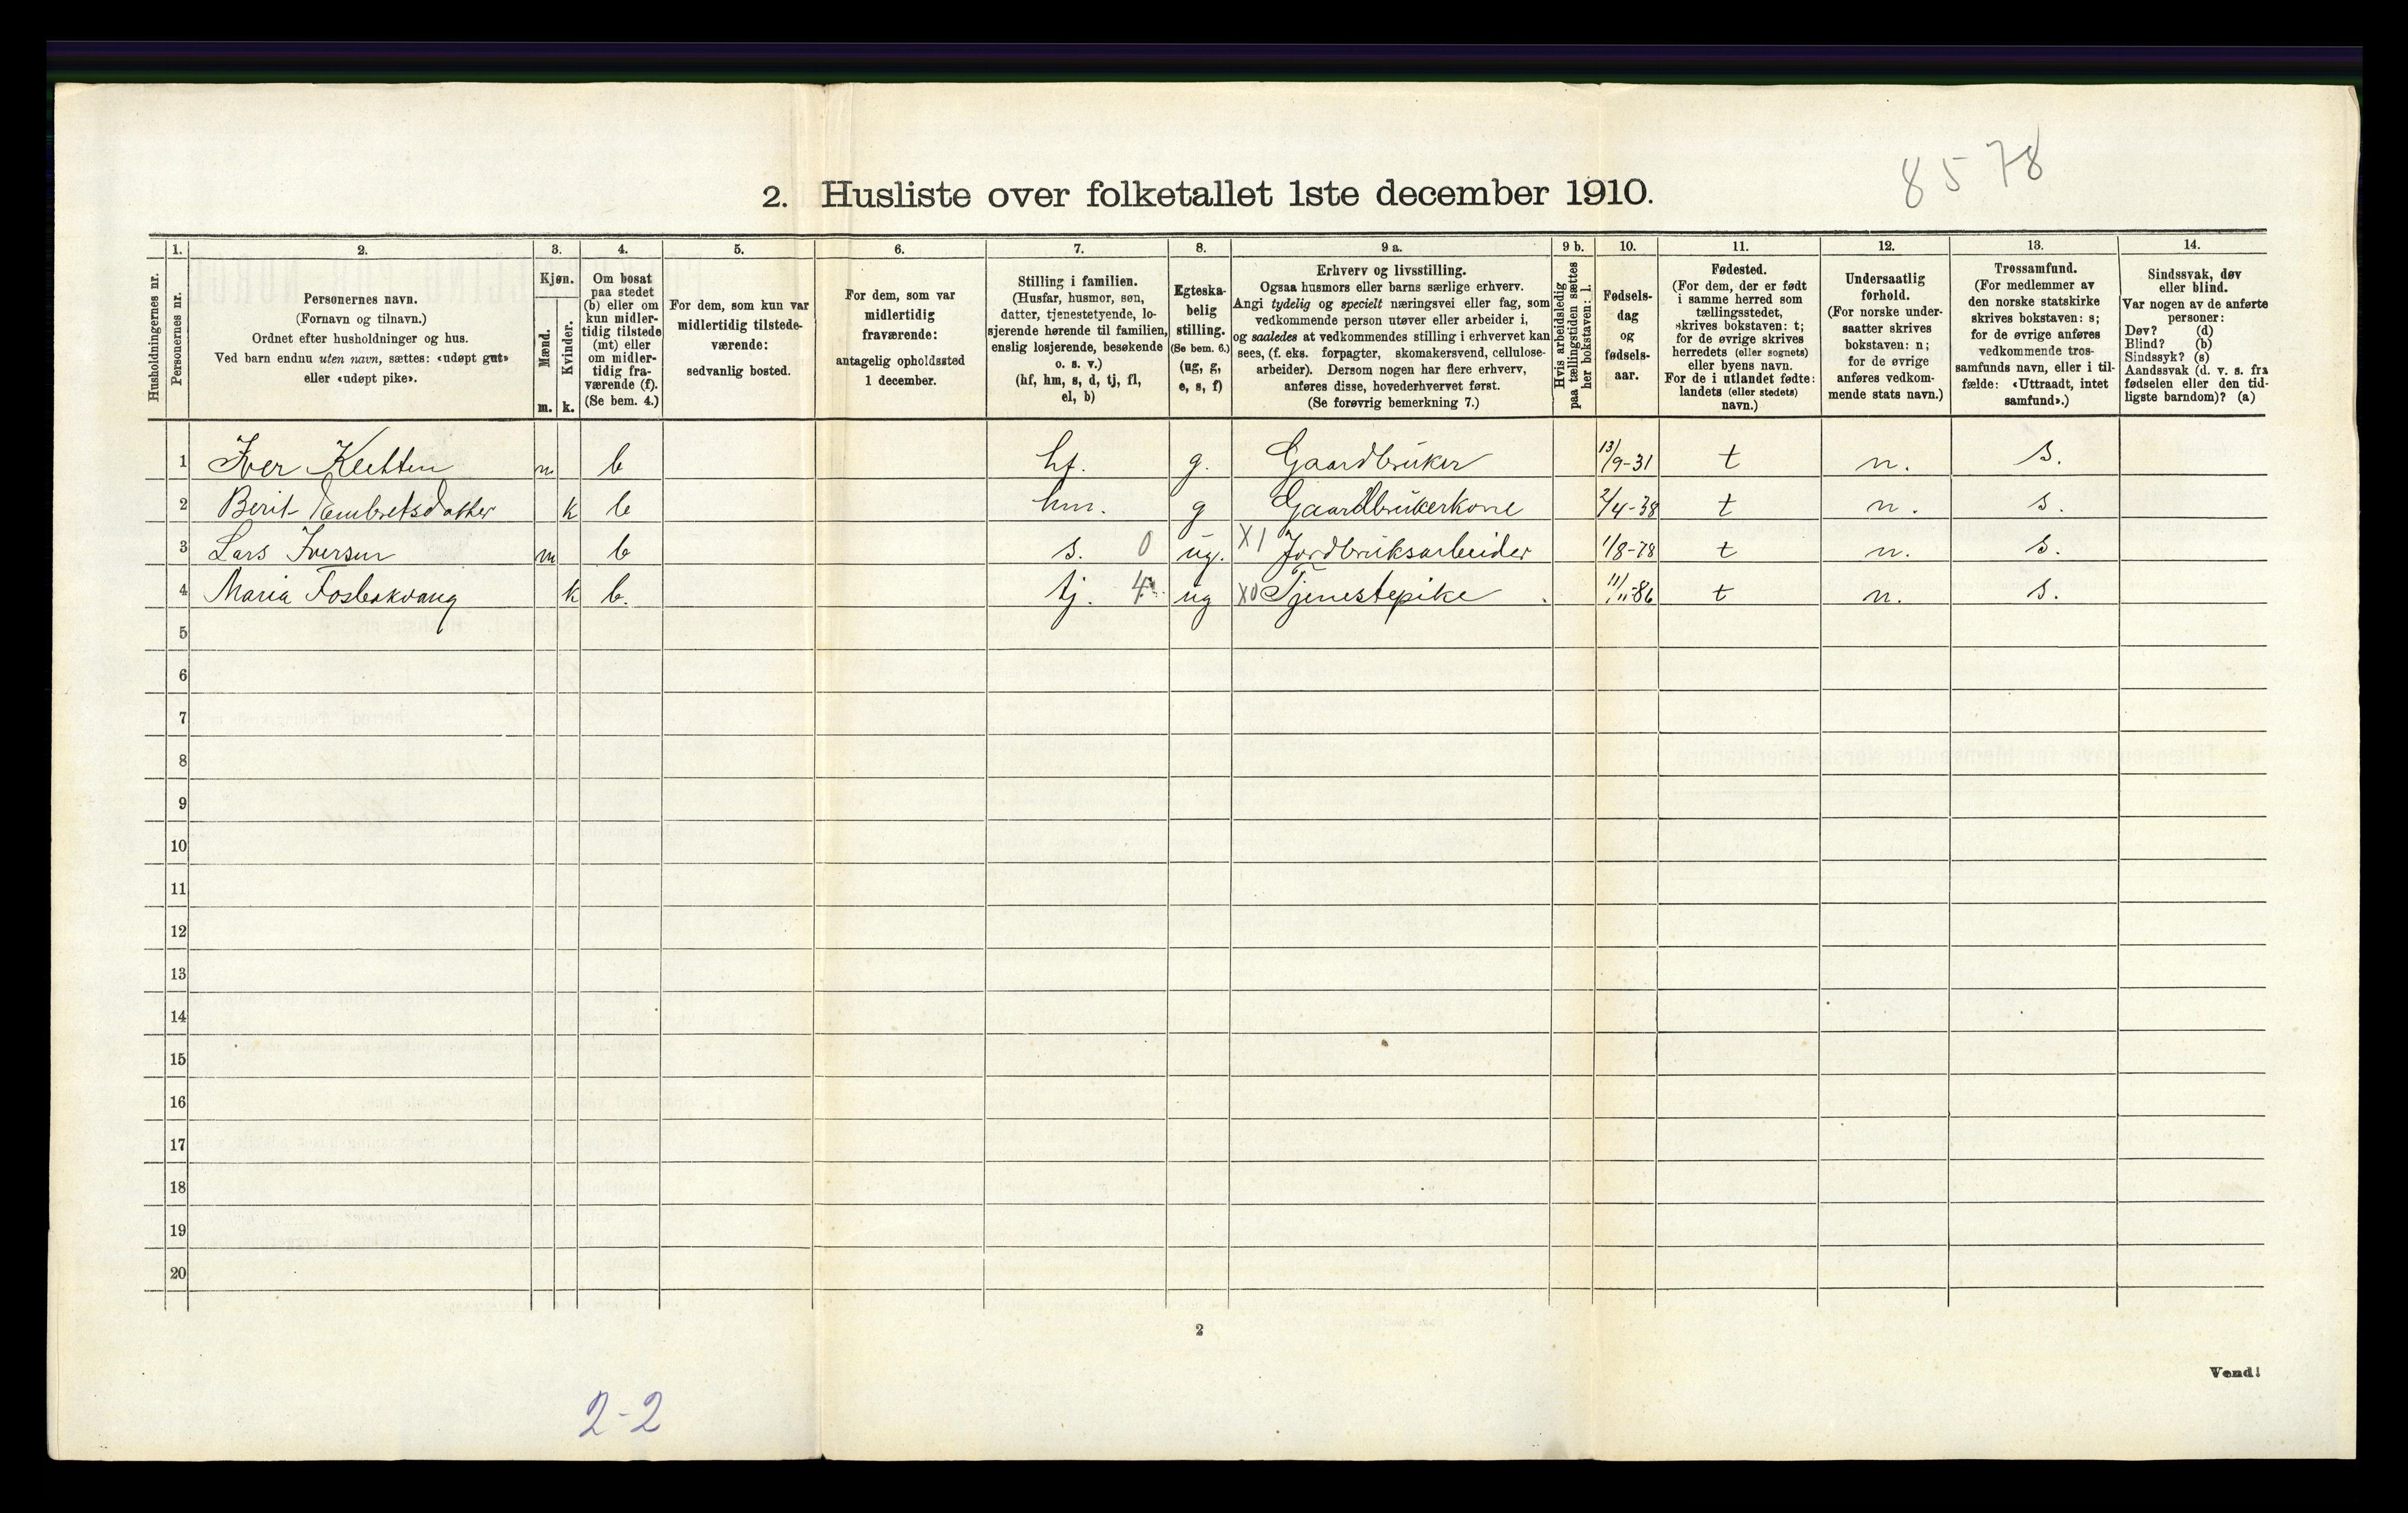 8578
2. Husliste over folketallet 1ste december 1910.
Husholdningernes nr.
1.
Personernes nr.
2.
Personernes navn.
(Fornavn og tilnavn.)
Ordnet efter husholdninger og hus.
Ved barn endnu uten navn, sættes: «udøpt gut»
eller «udøpt pike».
3.
Kjøn.
Mænd.
Kvinder.
m. k.
4.
Om bosat
paa stedet
(b) eller om
kun midler-
tidig tilstede
(mt) eller
om midler-
tidig fra-
værende (f).
(Se bem. 4.)
5.
For dem, som kun var
midlertidig tilstede-
værende:
sedvanlig bosted.
6.
For dem, som var
midlertidig
fraværende:
antagelig opholdssted
1 december.
7.
Stilling i familien.
(Husfar, husmor, søn,
datter, tjenestetyende, lo-
sjerende hørende til familien,
enslig losjerende, besøkende
o. s. v.)
(hf, hm, s, d, tj, fl,
el, b)
8.
Egteska-
belig
stilling.
(Se bem. 6.)
(ug, g,
e, s, f)
9 a.
Erhverv og livsstilling.
Ogsaa husmors eller barns særlige erhverv.
Angi tydelig og specielt næringsvei eller fag, som
vedkommende person utøver eller arbeider i,
og saaledes at vedkommendes stilling i erhvervet kan
sees, (f. eks. forpagter, skomakersvend, cellulose-
arbeider). Dersom nogen har flere erhverv,
anføres disse, hovederhvervet først.
(Se forøvrig bemerkning 7.)
9 b.
Hvis arbeidsledig
paa tællingstiden sættes
her bokstaven: l.
10.
Fødsels-
dag
og
fødsels-
aar.
11.
Fødested.
(For dem, der er født
i samme herred som
tællingsstedet,
skrives bokstaven: t;
for de øvrige skrives
herredets (eller sognets)
eller byens navn.
For de i utlandet fødte:
landets (eller stedets)
navn.)
12.
Undersaatlig
forhold.
(For norske under-
saatter skrives
bokstaven: n;
for de øvrige
anføres vedkom-
mende stats navn.)
13.
Trossamfund.
(For medlemmer av
den norske statskirke
skrives bokstaven: s;
for de øvrige anføres
vedkommende tros-
samfunds navn, eller i til-
fælde: «Uttraadt, intet
samfund».)
14.
Sindssvak, døv
eller blind.
Var nogen av de anførte
personer:
Døv? (d)
Blind? (b)
Sindssyk? (s)
Aandssvak (d. v. s. fra
fødselen eller den tid-
ligste barndom)? (a)
1 Iver Kletten m b hf. g. Gaardbruker 13/9-31 t n. s.
2 Berit Embretsdatter k b hm. g Gaardbrukerkone 2/4-38 t n. s.
3 Lars Iversen m b s. 0 ug. X1 Jordbruksarbeider 1/8-78 t n. s.
4 Maria Fosbakvang k b. tj. 4 ug X0 Tjenestepike 11/11-86 t n. s.
5
6
7
8
9
10
11
12
13
14
15
16
17
18
19
20
2
Vend!
2-2